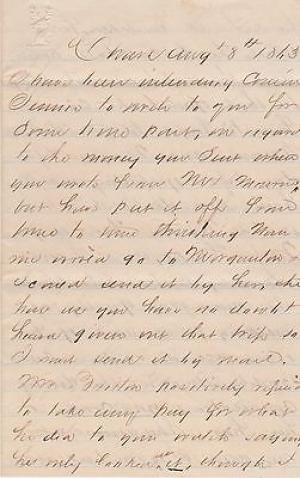 Chase Augt 8th 1863
I have been intending Cousin
Jennie to write to you for
Some time past, in regard
to the money you Sent when
you wrote from Mrs
but have put it off from
time to time thinking Nan
nie would go to Morganton &
I could send it by her, she
has as you have no doubt
heard given out that trip so
I must send it by mail.
Mr. positively refused
to take any pay for what
he did to your watch saying
he only it, though I